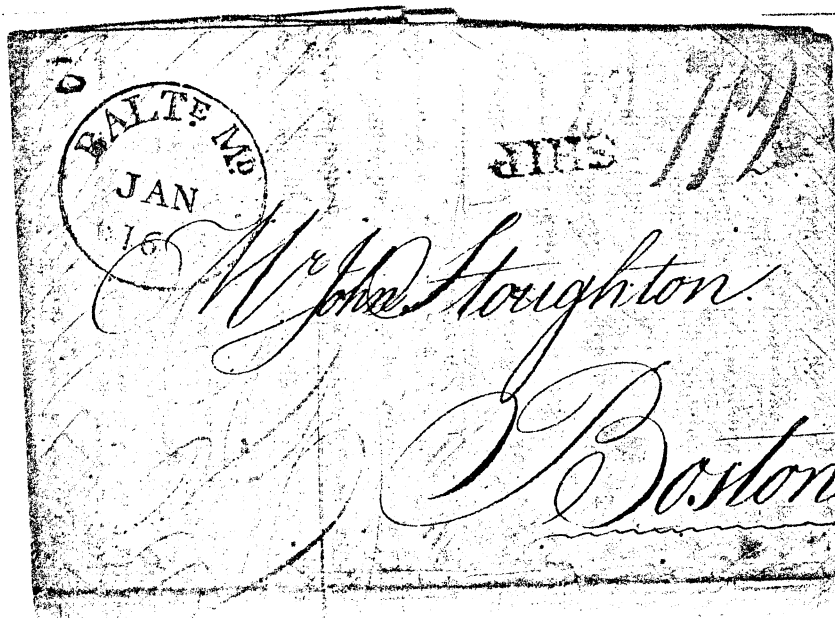 BALTE. MD.
JAN
16
SHIP
Mr. John Stoughton.
Boston